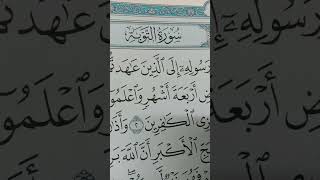 سُورَةُ التَّوْبَةِ
رَسُولِهِۦٓ إِلَى ٱلَّذِينَ عَٰهَدتُّم
أَرْبَعَةَ أَشْهُرٍ وَٱعْلَمُوٓا۟
ٱلْكَٰفِرِينَ ٢ وَأَذَٰنٌ
ٱلْأَكْبَرِ أَنَّ ٱللَّهَ